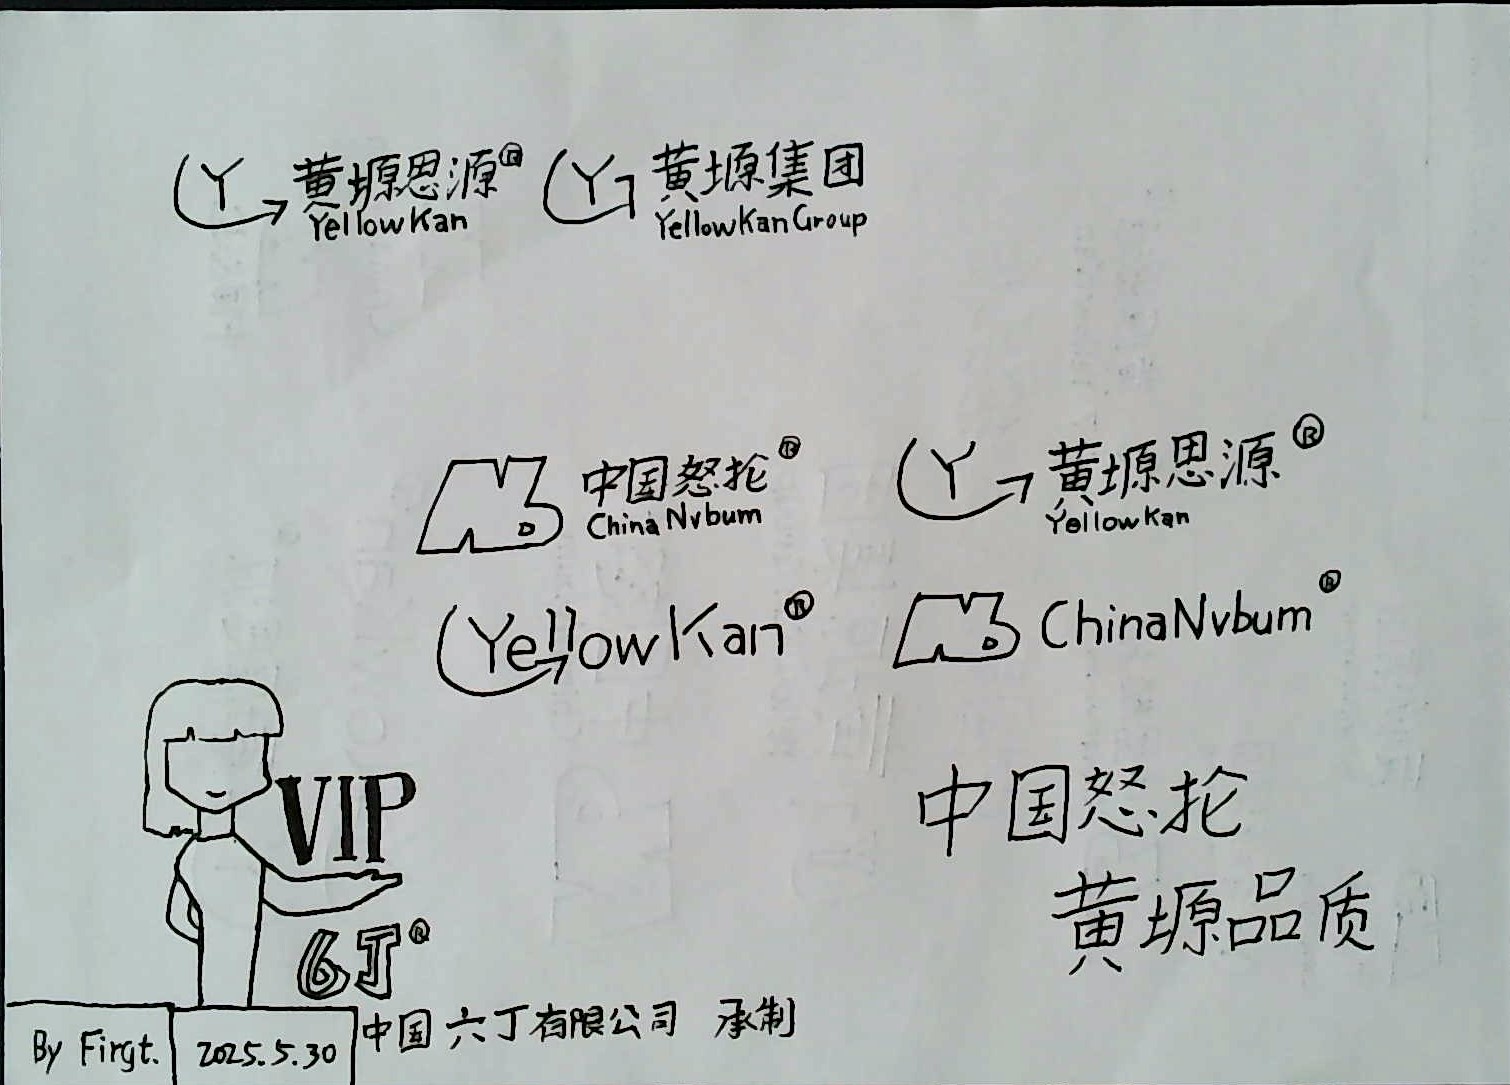 Y 黄塬思源® Y 黄塬集团
YellowKan YellowKanGroup
中国怒抡® Y 黄塬思源®
ChinaNvbum YellowKan
YellowKan® ChinaNvbum®
VIP
中国怒抡
黄塬品质
6丁®
中国六丁有限公司 承制
By Firgt. 2025.5.30